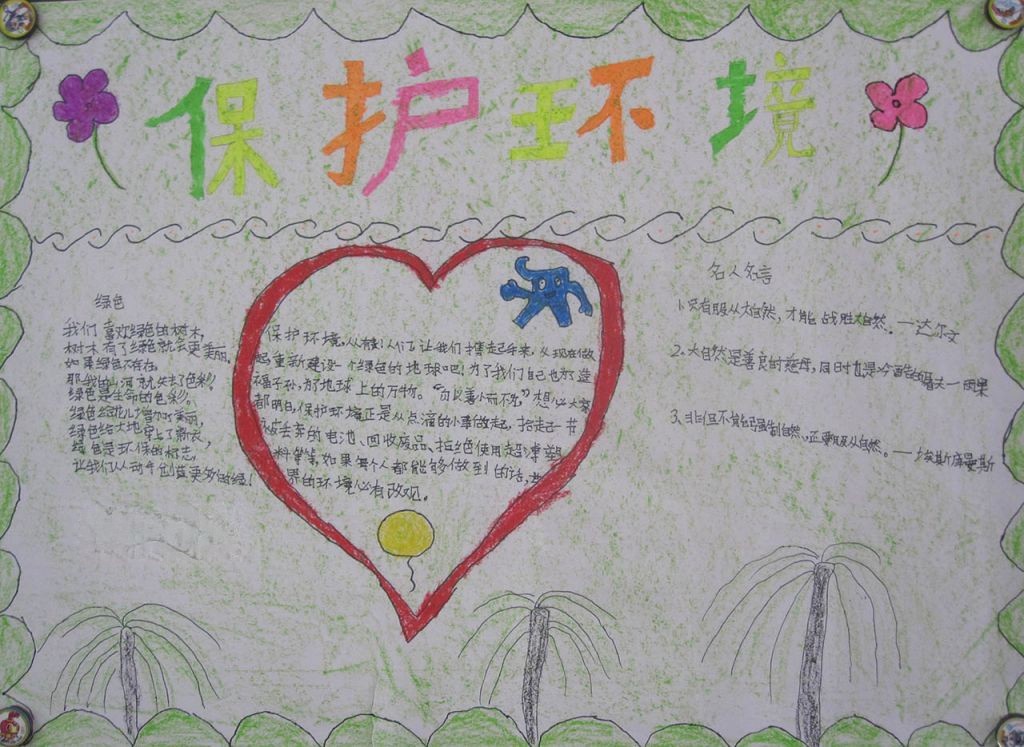 保护环境
绿色
我们喜欢绿色的树木,
树木有了绿色就会更美丽。
如果绿色不存在,
那我的山河就失去了色彩,
绿色是生命的色彩。
绿色给花儿增加美丽,
绿色给大地穿上了新衣,
绿色是环保的标志,
让我们从动手创造更多的绿!
保护环境,从有我!人们让我们携起手来,从现在做
起重新建设一个绿色的地球吧!为了我们自己也为了造
福子孙,为了地球上的万物。“勿以善小而不为”想必大家
都明白,保护环境正是从点滴的小事做起,拾起一节
被丢弃的电池、回收废品、拒绝使用超薄塑
料等等,如果每个人都能够做到的话,世
界的环境必有改观。
名人名言
1、只有服从大自然,才能战胜大自然。—达尔文
2、大自然是善良的慈母,同时也是冷酷的屠夫—雨果
3、非但不能强制自然,还要服从自然。—埃斯库曼斯